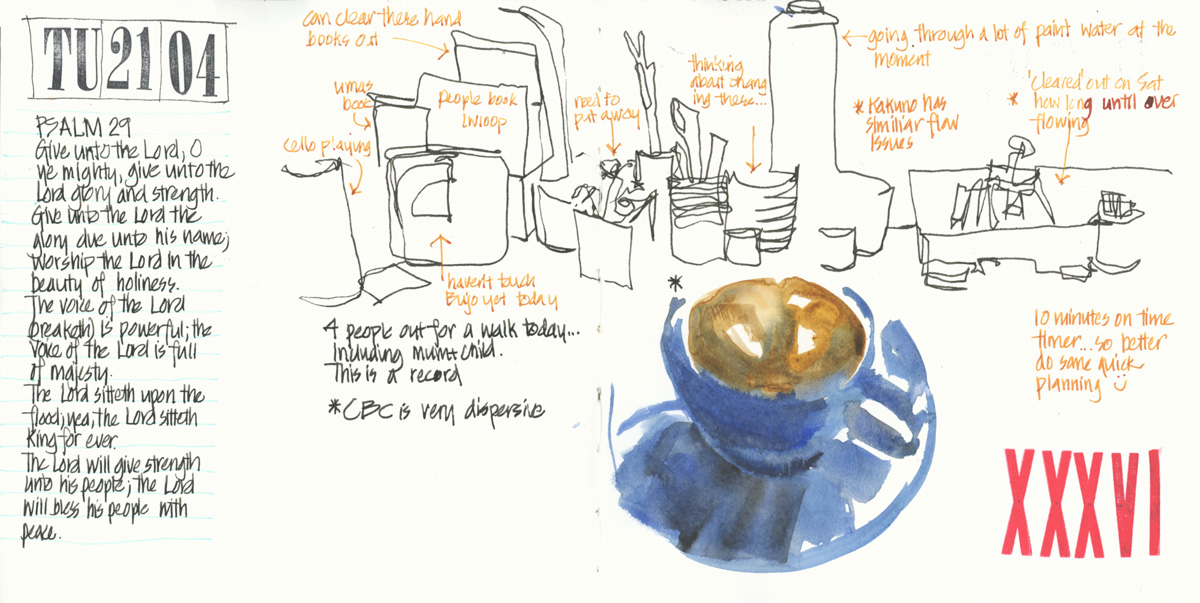 TU 21 04
PSALM 29
Give unto the Lord, O
ye mighty, give unto the
Lord glory and strength.
Give unto the Lord the
glory due unto his name;
worship the Lord in the
beauty of holiness.
The voice of the Lord
(breaketh) is powerful; the
voice of the Lord is full
of majesty.
The Lord sitteth upon the
flood; yea, the Lord sitteth
King for ever.
The Lord will give strength
unto his people; the Lord
will bless his people with
peace.
can clear these hand
books out
umas
book
cello playing
people book
need to
put away
thinking
about chang
ing these...
going through a lot of paint water at the
moment
* Kakuno has
similiar flow
issues
'cleared' out on Sat
* how long until over
flowing
haven't touch
Bujo yet today
4 people out for a walk today...
including mum + child.
This is a record
* CBC is very dispersive
*
10 minutes on time
timer... so better
do some quick
planning
XXXVI